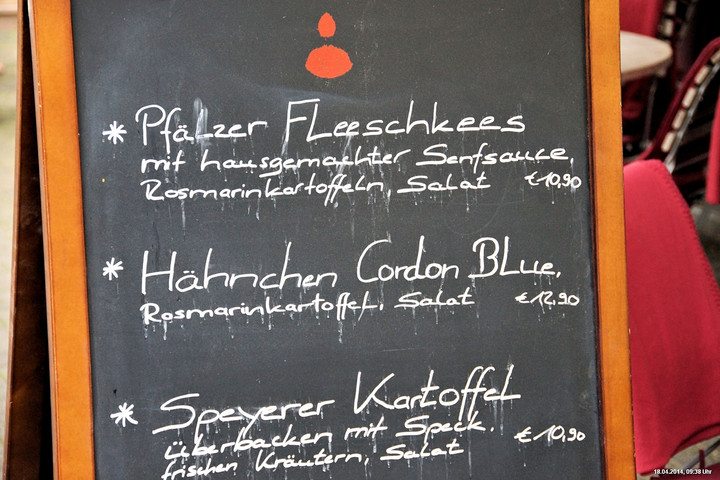 * Pfälzer Fleeschkees
mit hausgemachter Senfsauce,
Rosmarinkartoffeln, Salat €10,90
* Hähnchen Cordon Blue,
Rosmarinkartoffel, Salat €12,90
* Speyerer Kartoffel
überbacken mit Speck,
frischen Kräutern, Salat €10,90
18.04.2014, 09:38 Uhr